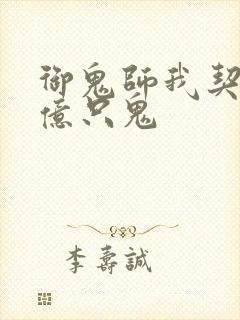 御鬼師我契
億只鬼
李壽誠